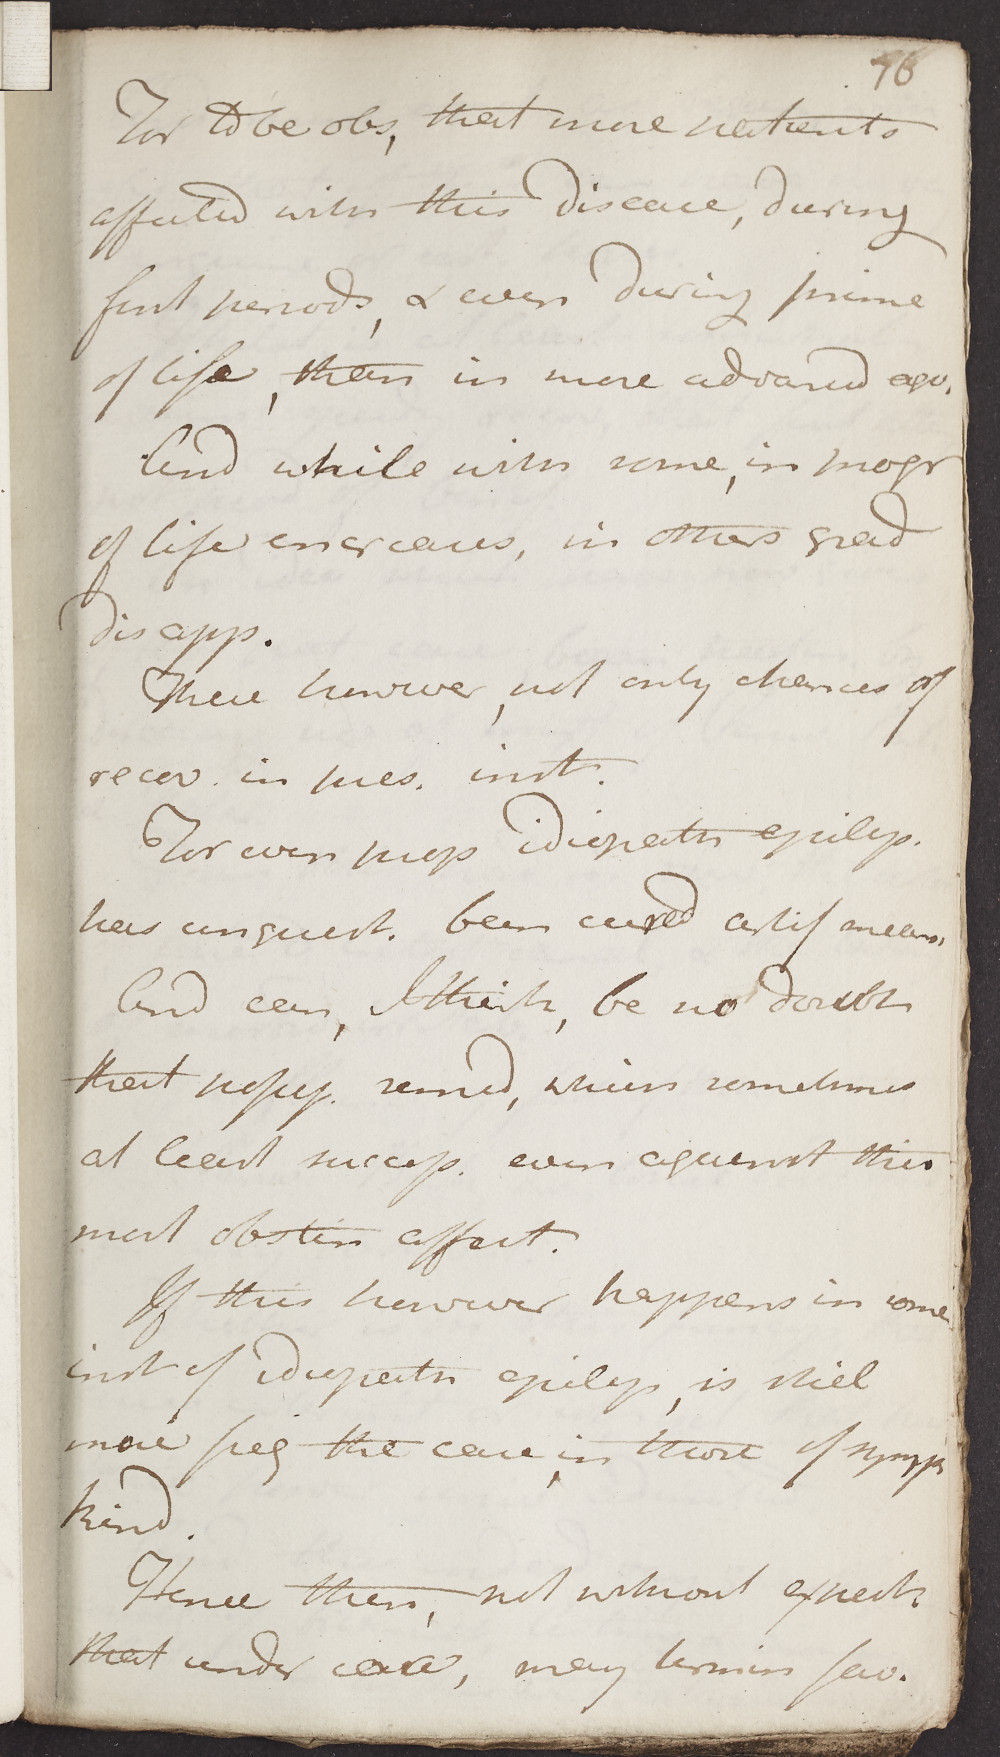 76
For to be obs, that more patients
affected with this Disease, during
first periods, & even during prime
of life, than in more advanced age.
And while with some, in progr
of life encreases, in others grad
disapp.
There however, not only chances of
recov. in pres. inst.
For even prop idiopath epilep.
has unquest. been cured artif means.
And can, I think, be no doubt
that possess. remed, which sometimes
at least success. even against this
most obstin affect.
If this however happens in some
inst of idiopath epilep, is still
more freq the case, in those of symp
kind.
Hence then, not without expect.
that under care, may termin fav.